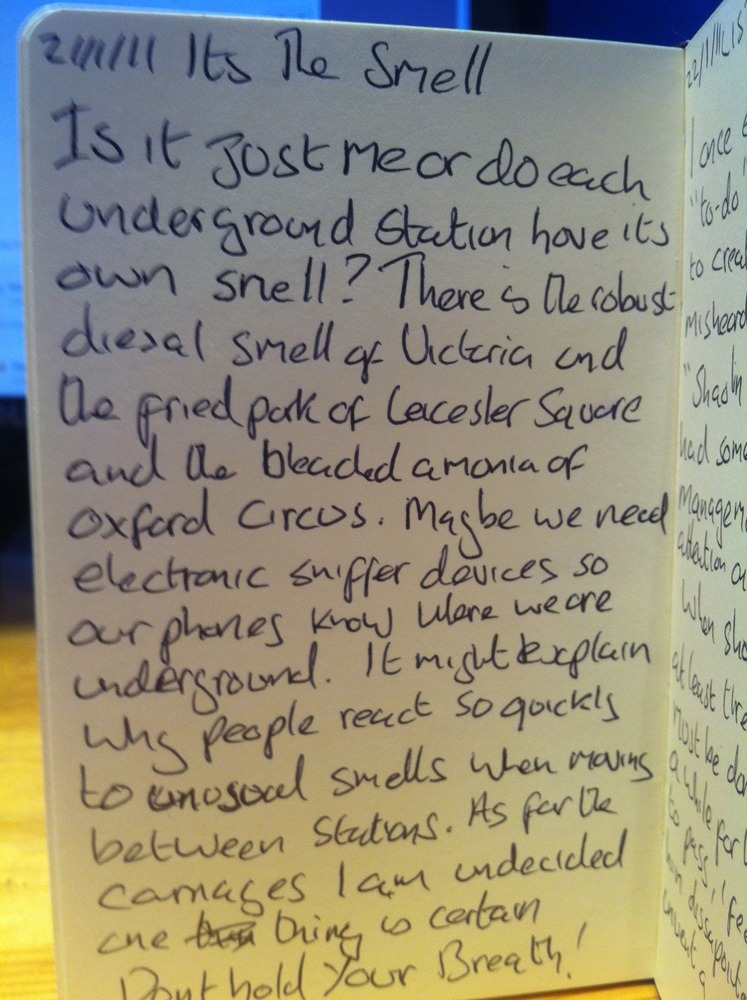 21/1/11 Its The Smell
Is it Just Me or do each
Underground Station have its
own smell? There is the robust
diesal smell of Victoria and
the fried pork of Leicester Square
and the bleaded amonia of
Oxford Circus. Maybe we need
electronic sniffer devices so
our phones know where we are
underground. It might explain
why people react so quickly
to unusual smells when moving
between stations. As for the
carriages I am undecided
one thing is certain
Dont hold Your Breath!
22/1/11 
I once
"to-do"
to creat
misheard
"Shaolin
had some
managem
attention
When sho
at least thre
must be don
a while for
to pass, I fee
disappoint